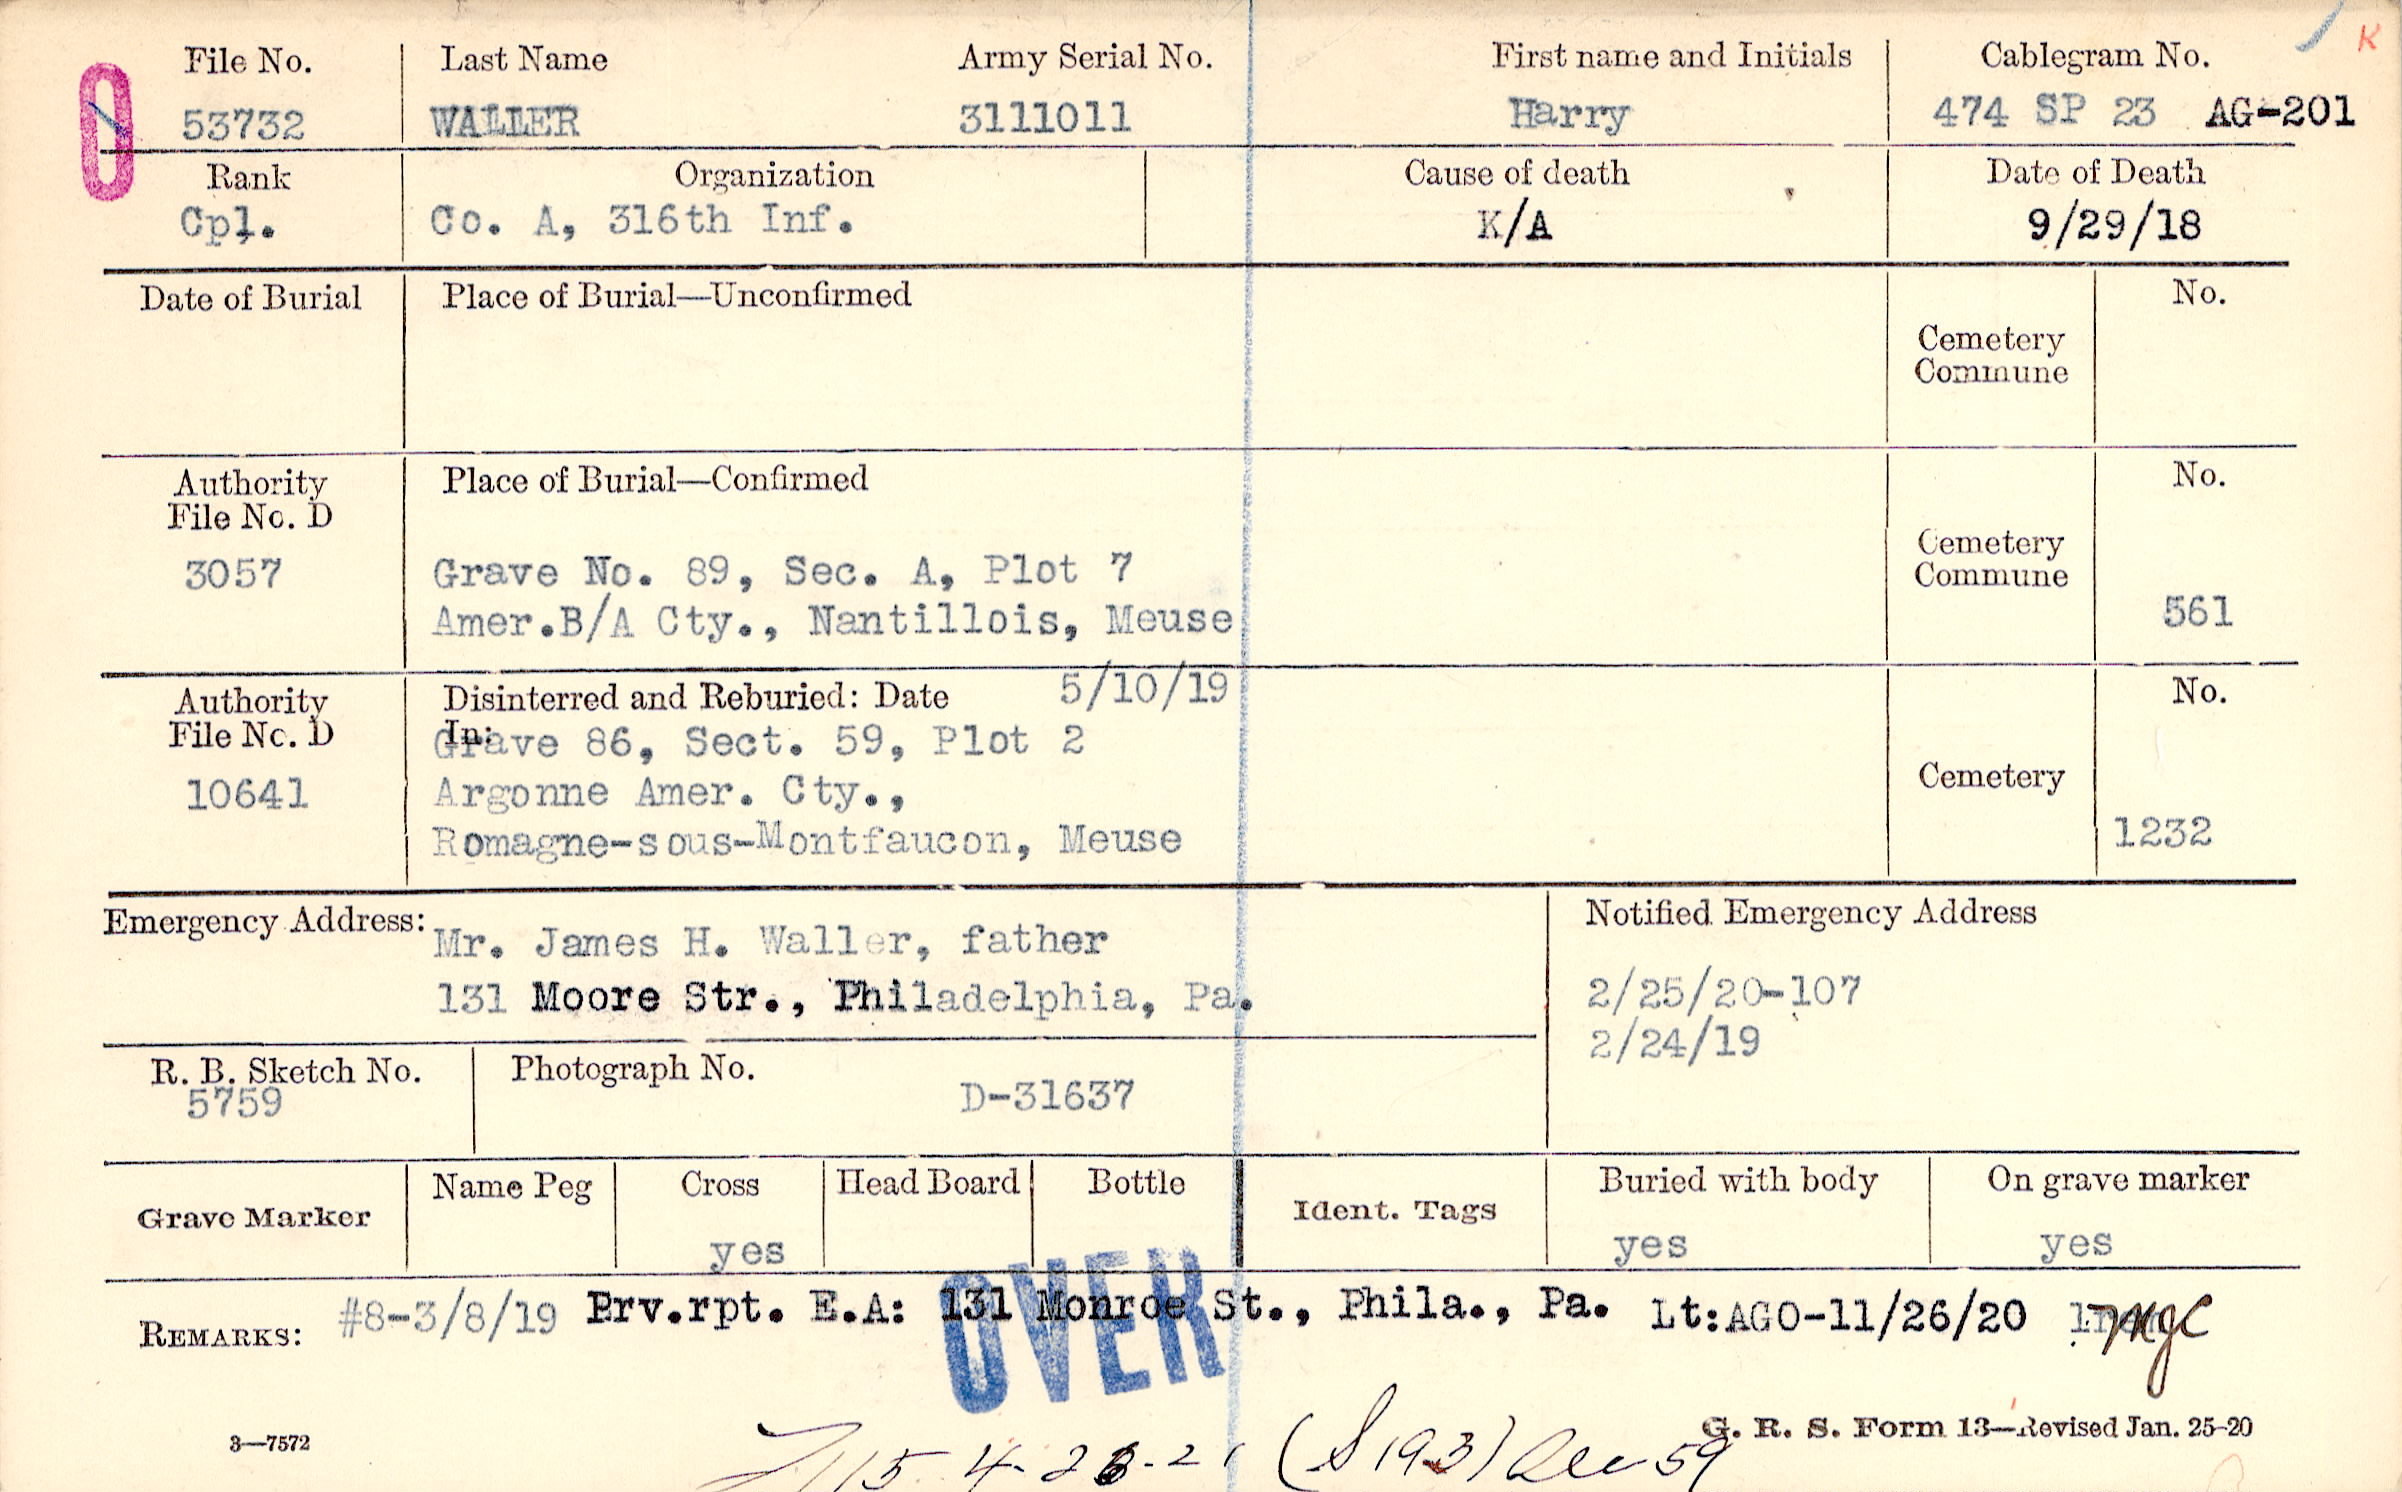 File No. Last Name Army Serial No. First name and Initials Cablegram No. K
53732 WALLER 3111011 Harry 474 SP 23 AG-201
Rank Organization Cause of death Date of Death
Cpl. Co. A, 316th Inf. K/A 9/29/18
Date of Burial Place of Burial—Unconfirmed No.
Cemetery
Commune
Authority Place of Burial—Confirmed No.
File No. D
Cemetery
Commune
3057 Grave No. 89, Sec. A, Plot 7
Amer.B/A Cty., Nantillois, Meuse 561
Authority Disinterred and Reburied: Date 5/10/19 No.
File No. D In:
Grave 86, Sect. 59, Plot 2
10641 Argonne Amer. Cty., Cemetery
Romagne-sous-Montfaucon, Meuse 1232
Emergency Address: Notified Emergency Address
Mr. James H. Waller, father
131 Moore Str., Philadelphia, Pa. 2/25/20-107
2/24/19
R. B. Sketch No. Photograph No.
5759 D-31637
Grave Marker Name Peg Cross Head Board Bottle Ident. Tags Buried with body On grave marker
yes yes yes
OVER
REMARKS: #8-3/8/19 Prv.rpt. E.A: 131 Monroe St., Phila., Pa. Lt:AGO-11/26/20
3—7572 G. R. S. Form 13—Revised Jan. 25-20
(S 193) Dec 59